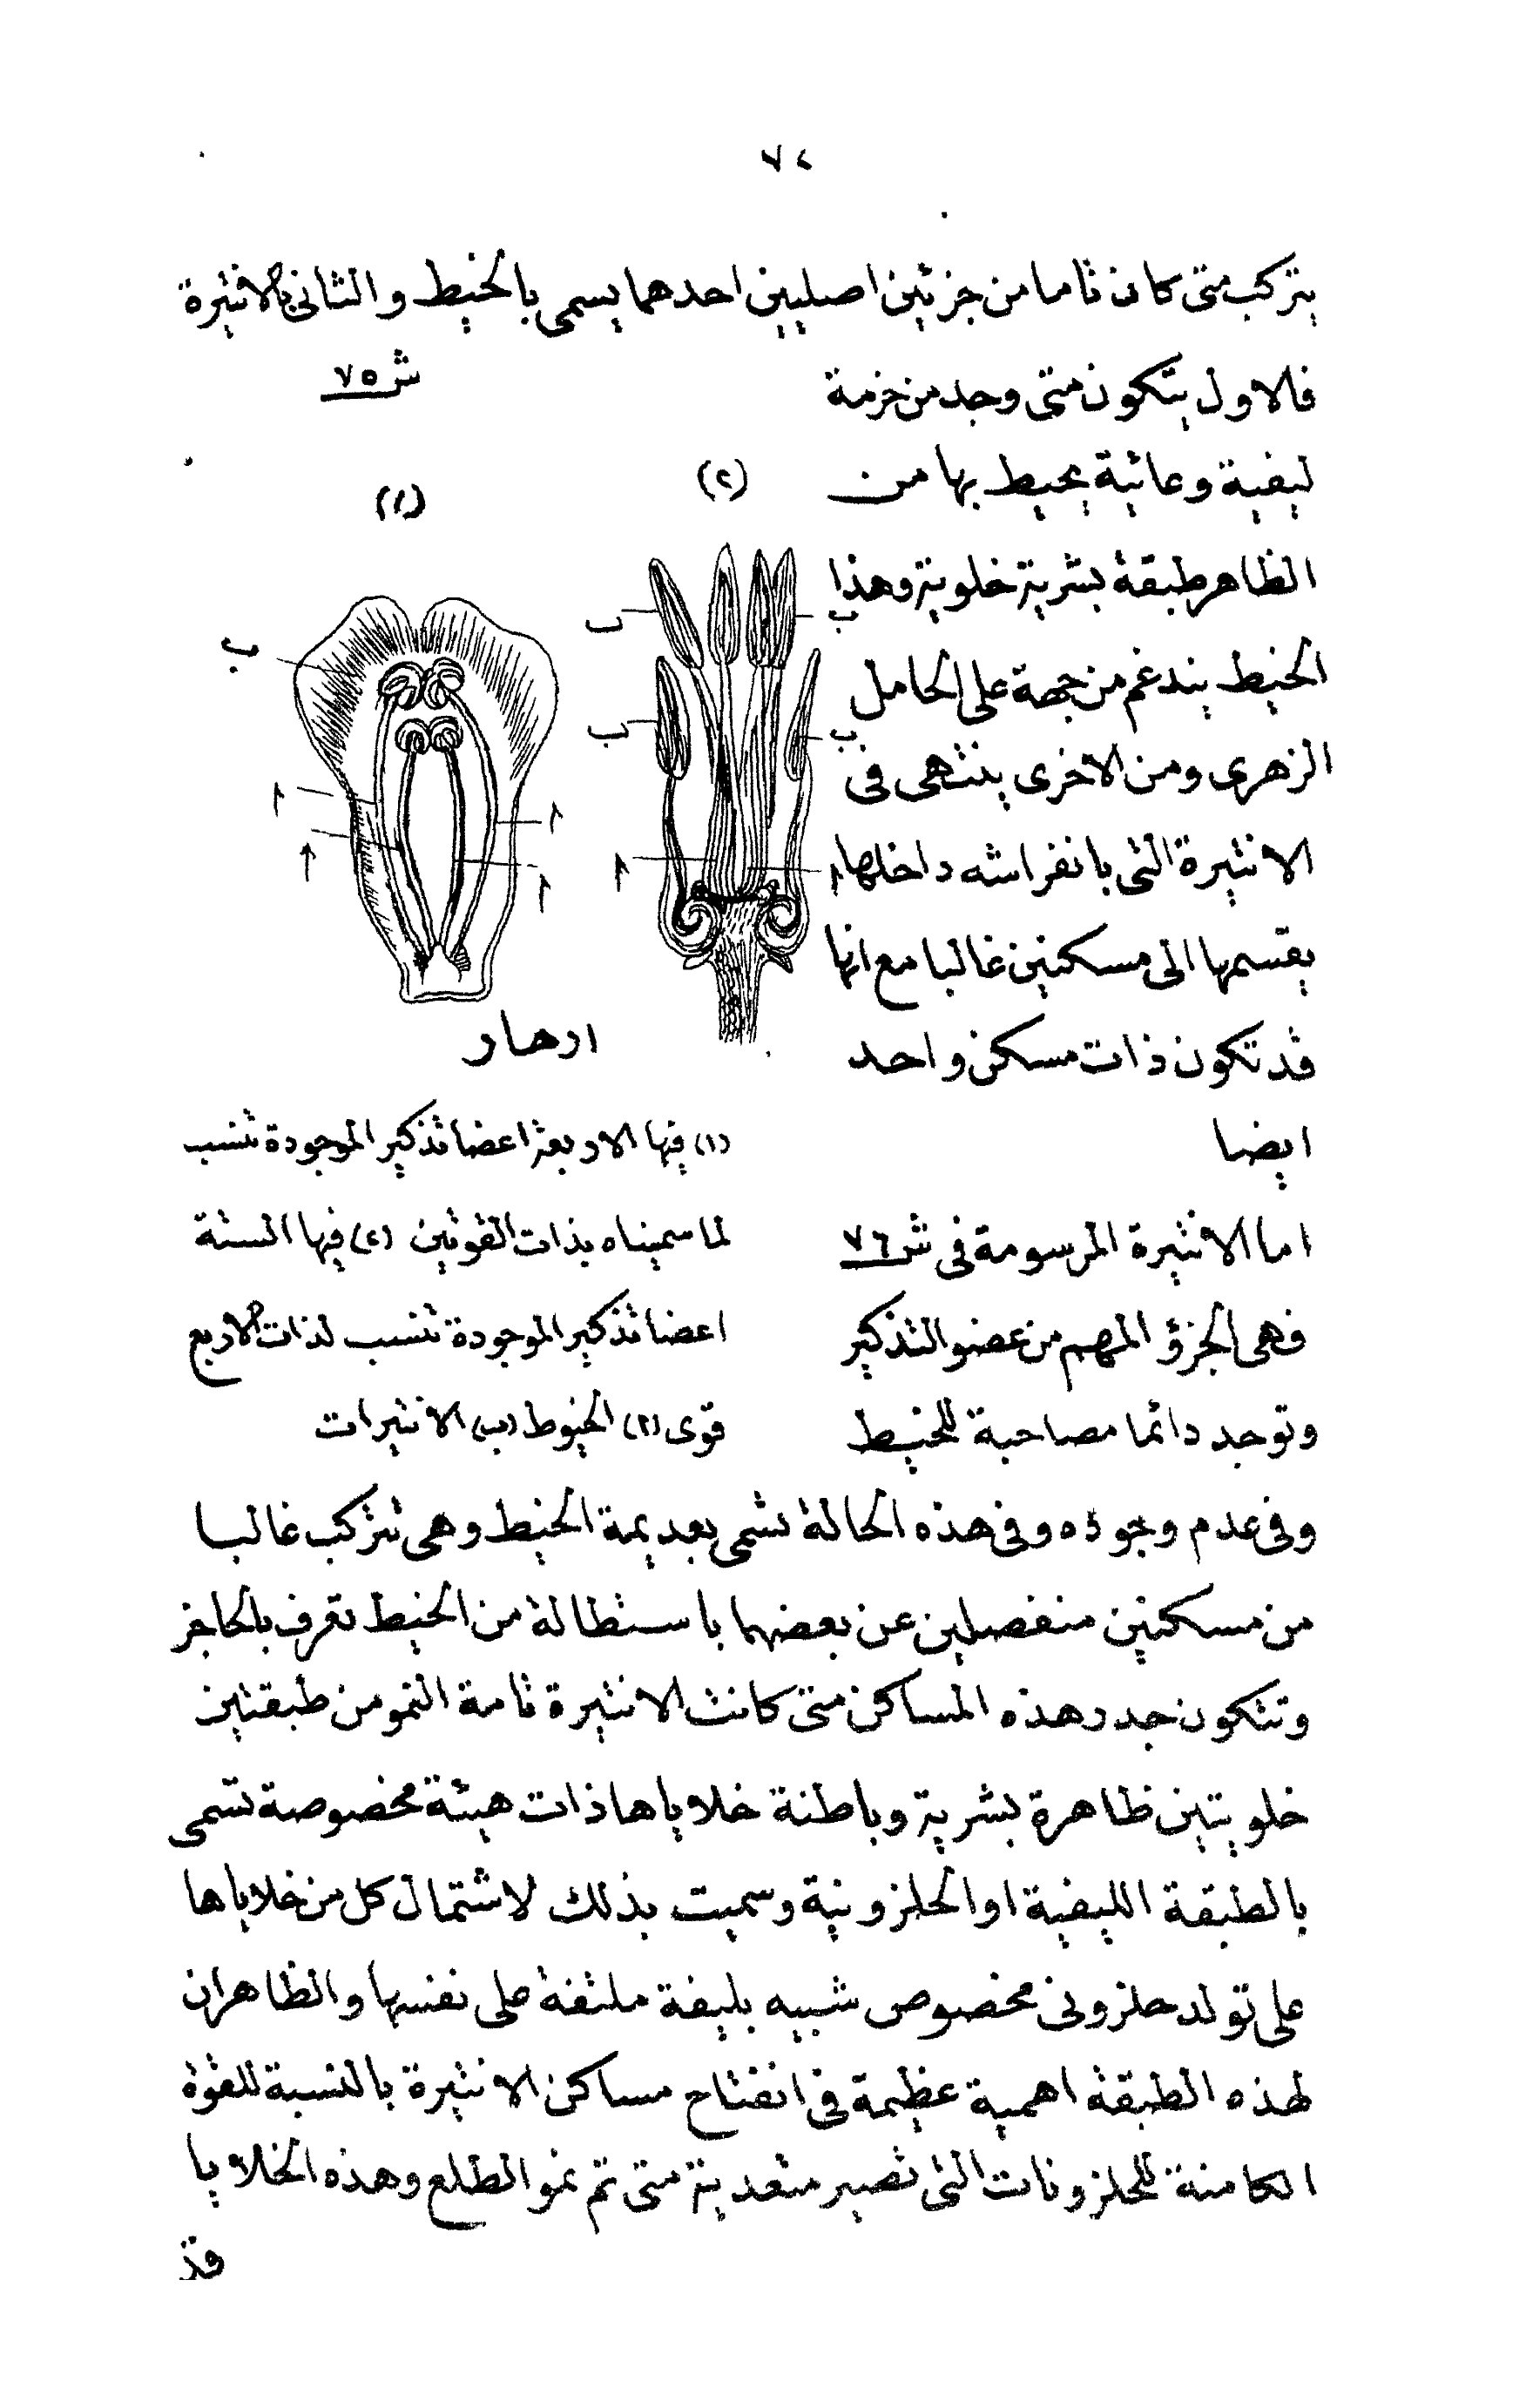 ٧٢
يتركب متى كان تاما من جزئين اصليين احدهما يسمى بالخيط والثانى بالانثيرة
ش ٧٥
فالاول يتكون متى وجد من حزمة
ليفية وعائية يحيط بها من
الظاهر طبقة بشرية خلوية وهذا
الخيط يندغم من جهة على الحامل
الزهرى ومن الاخرى ينتهى فى
الانثيرة التى بانفراشه داخلها
يقسمها الى مسكنين غالبا مع انها
قد تكون ذات مسكن واحد
ايضا
اما الانثيرة المرسومة فى ش ٧٦
فهى الجزؤ المهم من عضو التذكير
وتوجد دائما مصاحبة للخيط
(٢)
(١)
ب
ب
ب
ب
ب
ا
ا
ا
ا
ا
ا
ازهار
(١) فيها الاربعة اعضا تذكير الموجودة تنسب
لما سميناه بذات القوتين (٢) فيها الستة
اعضا تذكير الموجودة تنسب لذات الاربع
قوى (ا) الخيوط (ب) الانثيرات
وفى عدم وجوده وفى هذه الحالة تسمى بعديمة الخيط وهى تتركب غالبا
من مسكنين منفصلين عن بعضهما باستطالة من الخيط تعرف بالحاجز
وتتكون جدر هذه المساكن متى كانت الانثيرة تامة النمو من طبقتين
خلويتين ظاهرة بشرية وباطنة خلاياها ذات هيئة مخصوصة تسمى
بالطبقة الليفية او الحلزونية وسميت بذلك لاشتمال كل من خلاياها
على تولد حلزونى مخصوص شبيه بليفة ملتفة على نفسها والظاهران
لهذه الطبقة اهمية عظيمة فى انفتاح مساكن الانثيرة بالنسبة للقوة
الكامنة للحلزونات التى تصير متعدية متى تم نمو الطلع وهذه الخلايا
قد